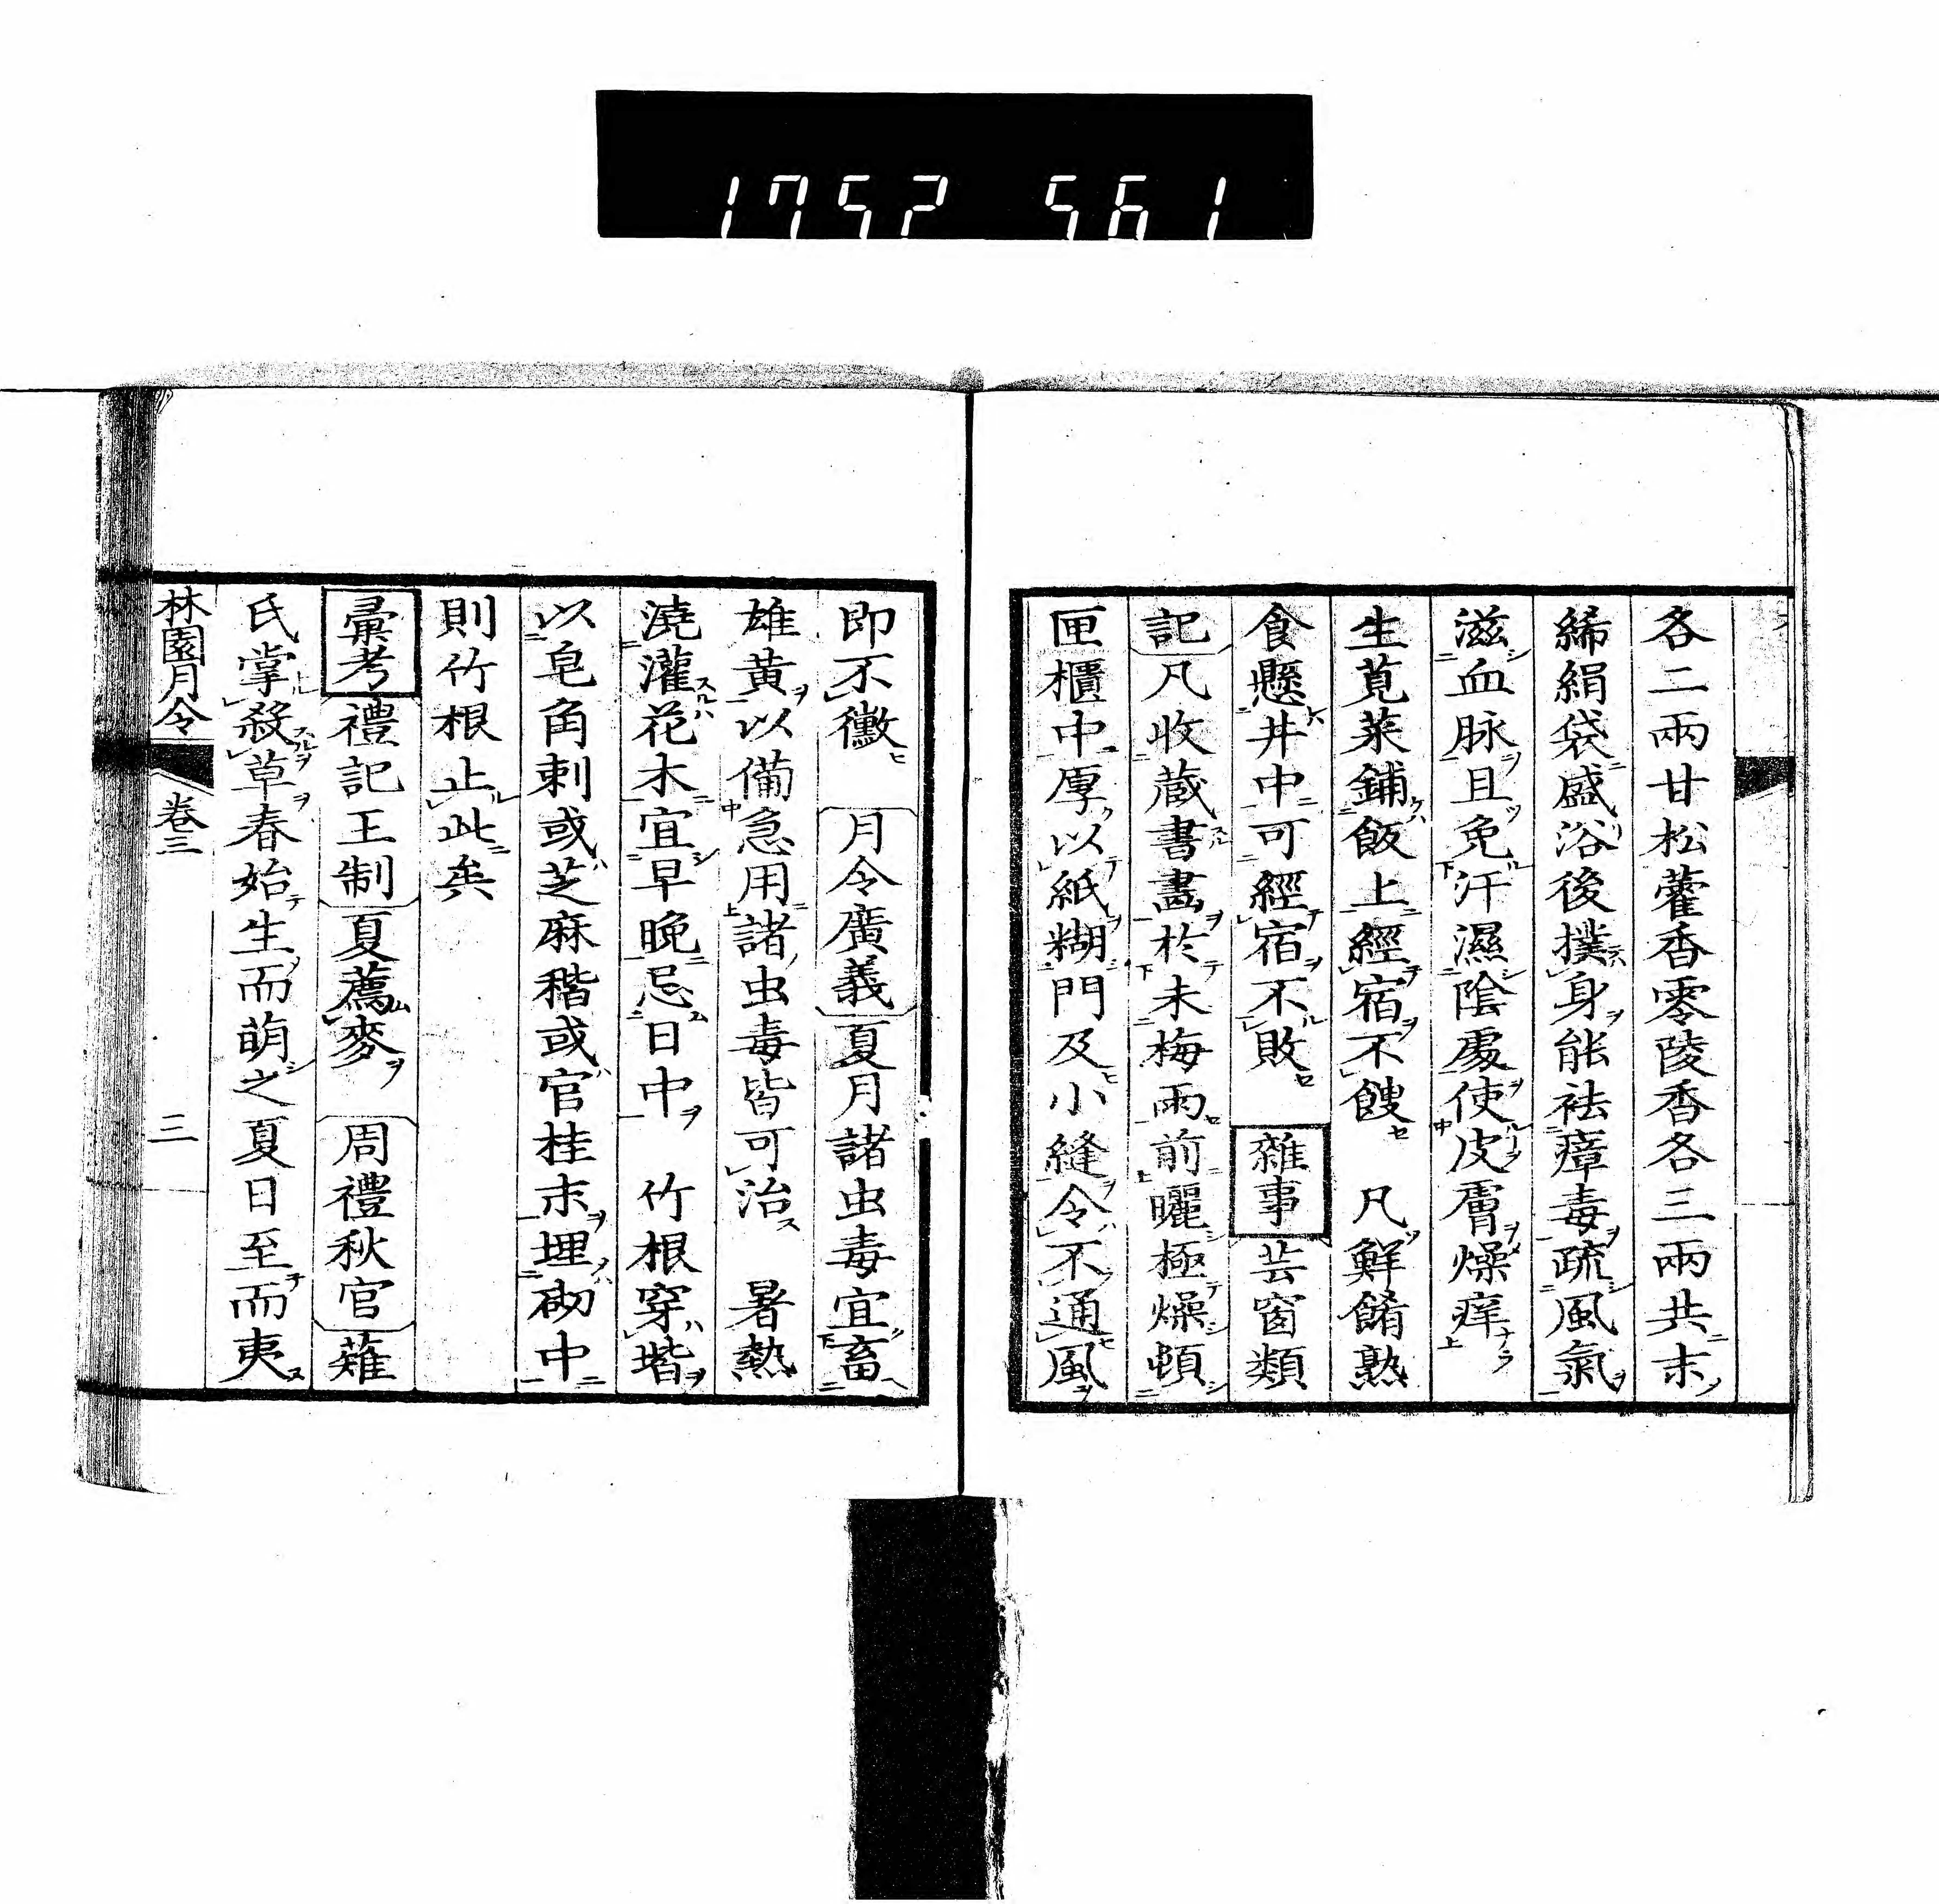 1752 561
各二兩甘松藿香零陵香各三兩共末
絺絹袋盛浴後撲身能祛瘴毒疏風氣
滋血脉且免汗濕陰處使皮膚燥痒
生莧菜鋪飯上經宿不餿 凡鮮餚熟
食懸井中可經宿不敗 雜事 芸窗類
記 凡收蔵書畫於未梅雨前曬極燥頓
匣櫃中厚以紙糊門及小縫令不通風
即不黴 月令廣義 夏月諸虫毒宜畜
雄黄以備急用諸虫毒皆可治 暑熱
澆灌花木宜早晩忌日中 竹根穿堦
以皂角刺或芝麻稭或官桂末埋砌中
則竹根止此矣
彙考 禮記王制 夏薦麥 周禮秋官 薙
氏掌殺草春始生而萌之夏日至而夷
林園月令 卷三 三